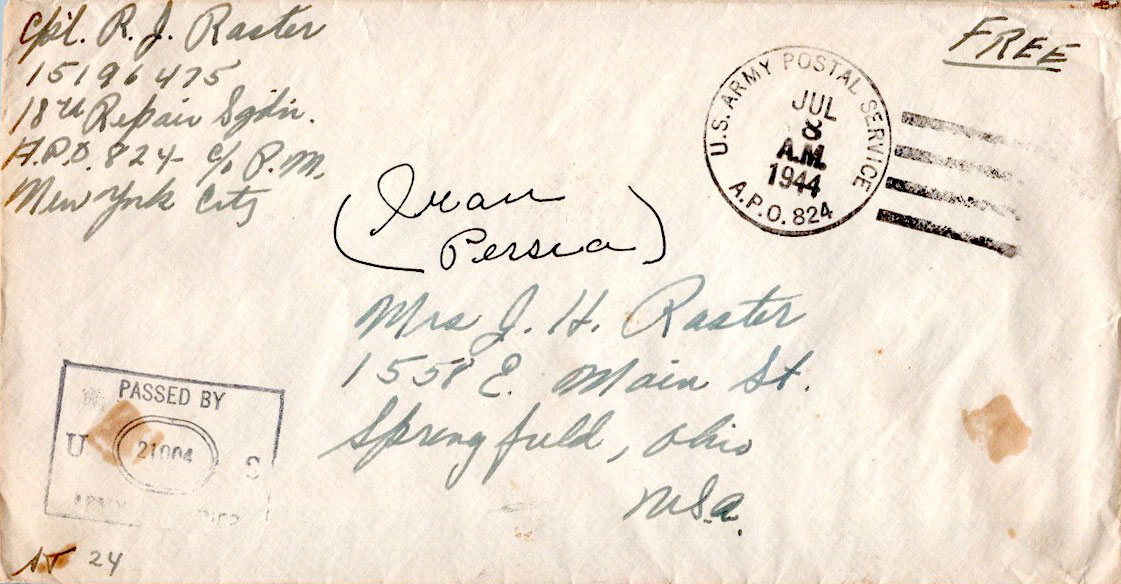 Cpl. R. J. Raster
15196475
18th Repair Sqdn.
A.P.O. 824 - c/o P.M.
New York City
FREE
U.S. ARMY POSTAL SERVICE
JUL
A.M.
1944
A.P.O. 824
(Iran
Persia)
Mrs J. H. Raster
1558 E. Main St.
Springfield, Ohio
U.S.A.
PASSED BY
U 21004 S
24